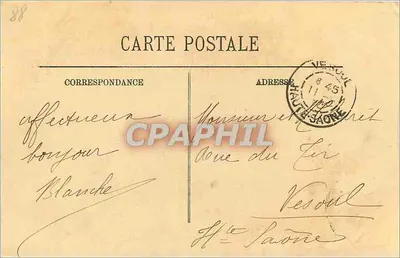 88
CARTE POSTALE
CORRESPONDANCE
ADRESSE
VESOUL
8 45
11
HAUTE-SAONE
CPAPHIL
affectueux
bonjour
Blanche
Monsieur et
Rue du Tir
Vesoul
Hte Saône